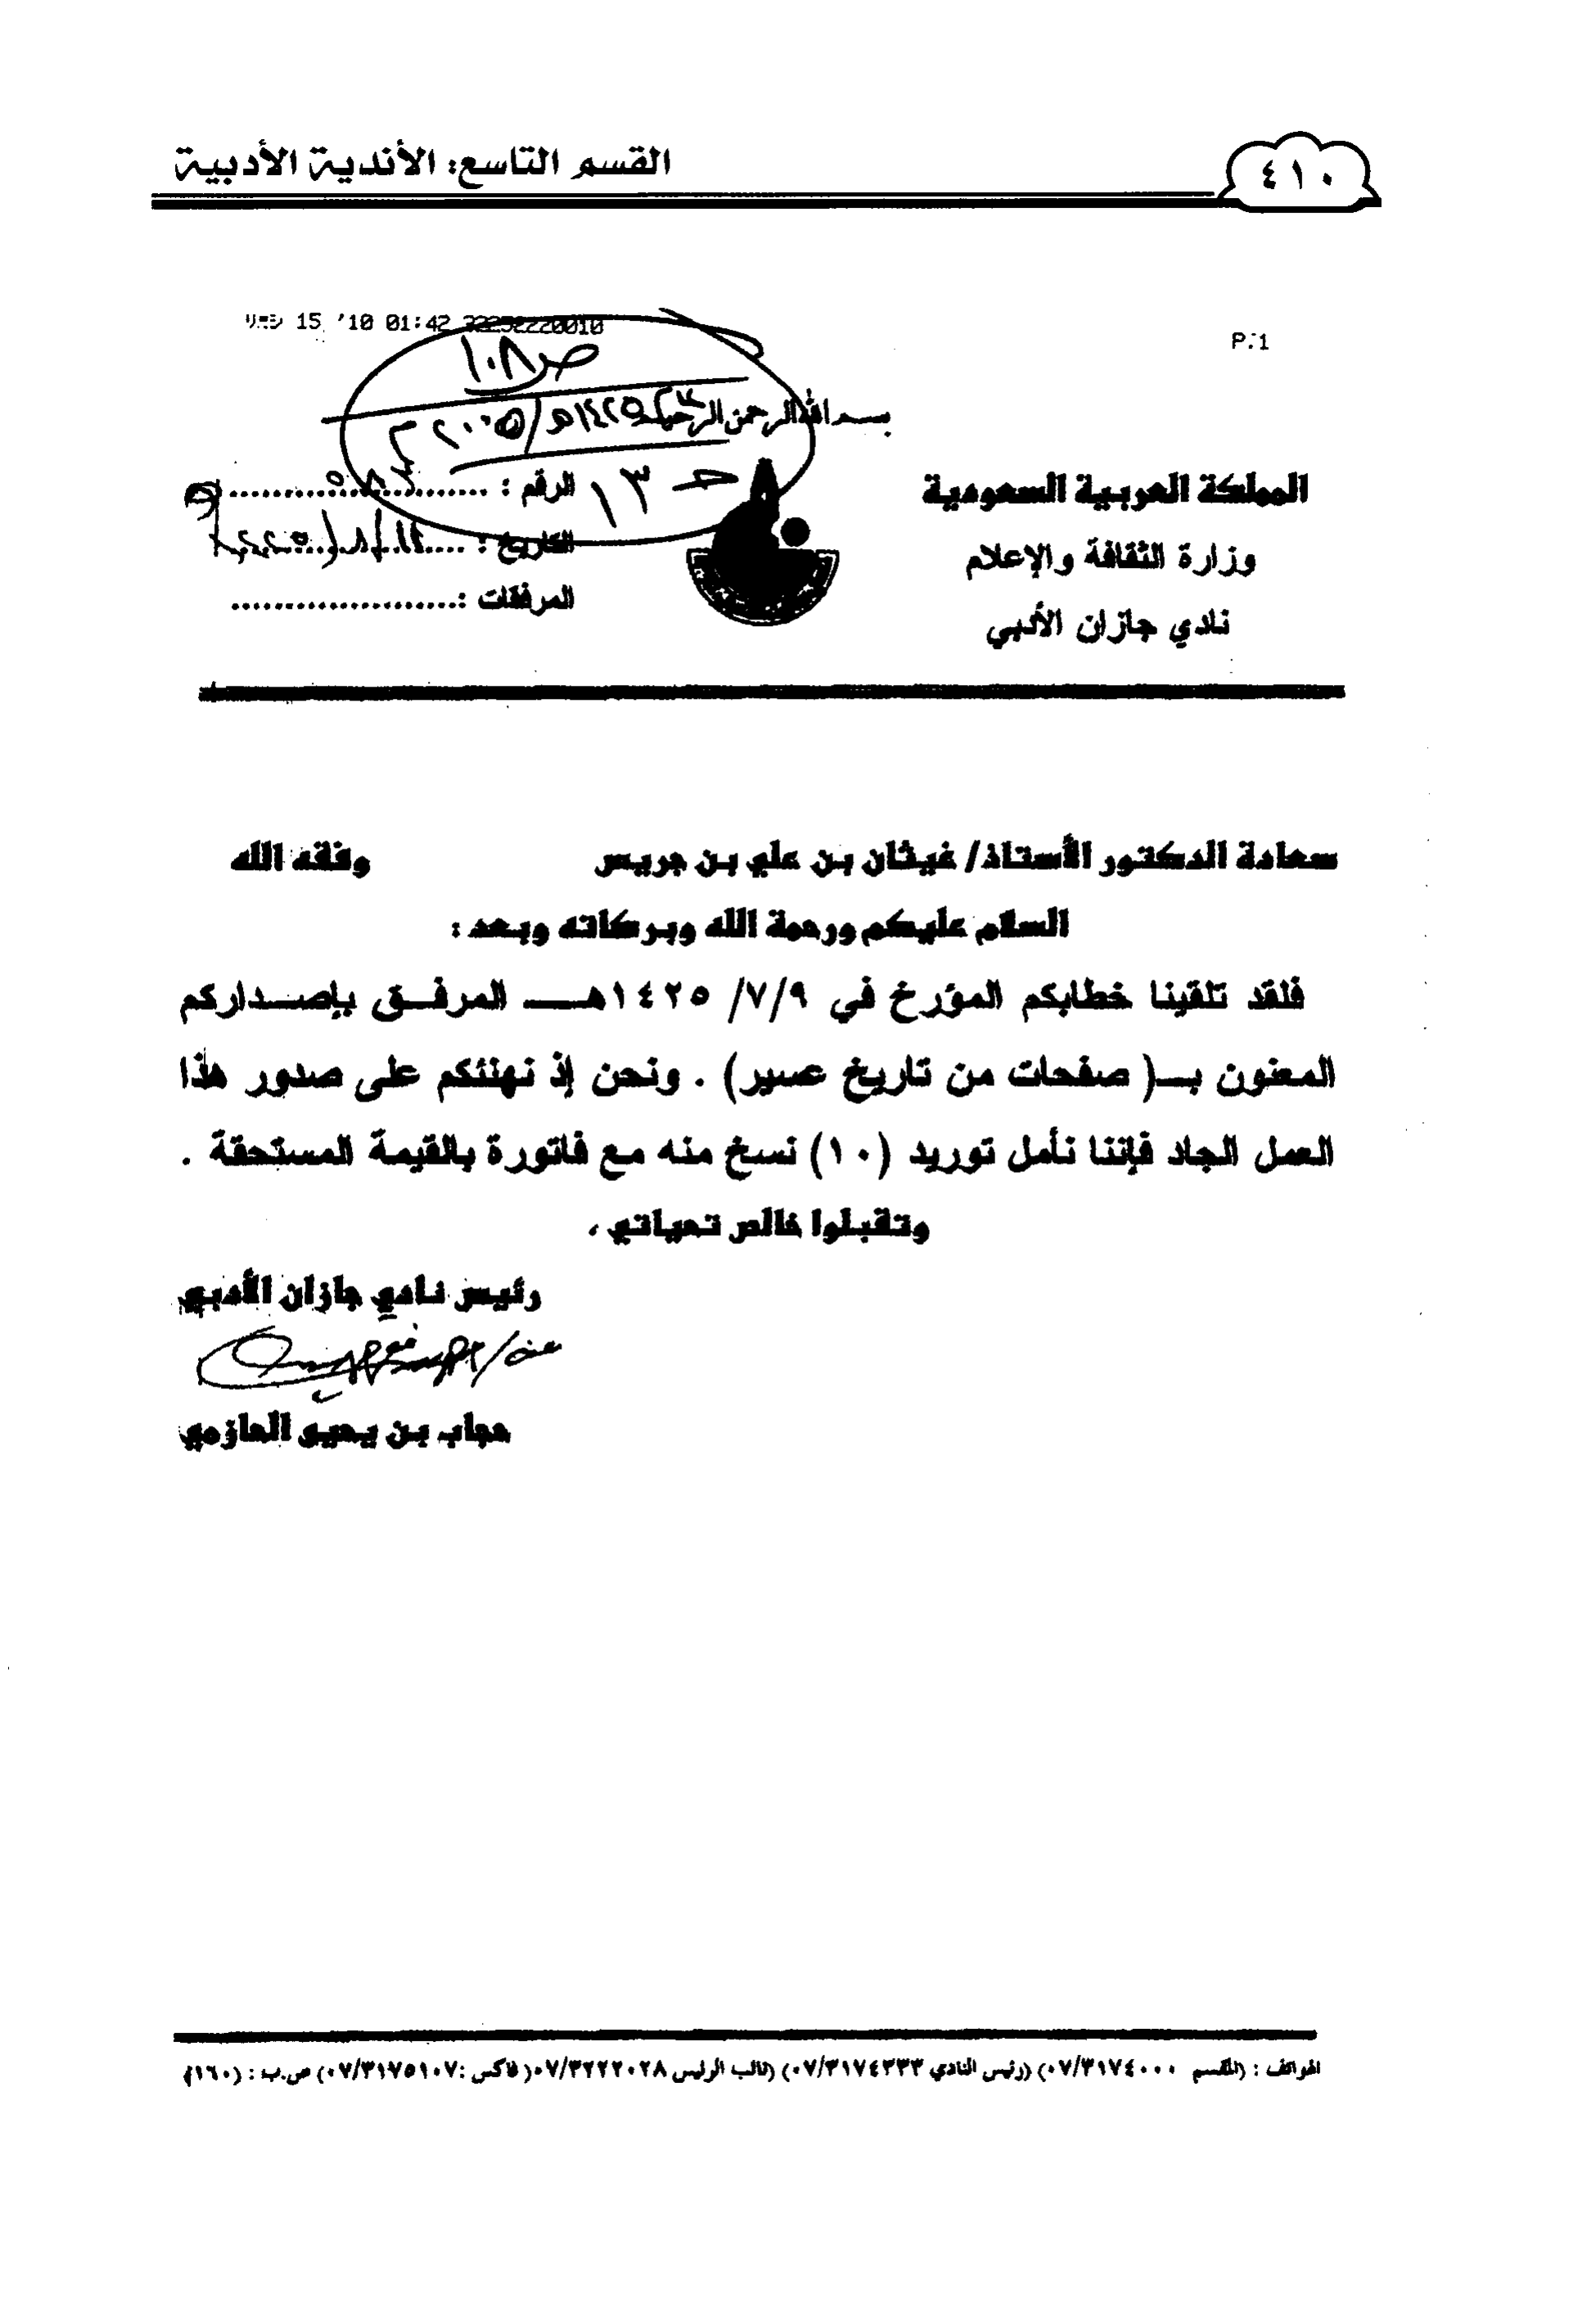 ٤١٠
القسم التاسع: الأندية الأدبية
15 '10 01:42 32252220010
P.1
ص ١٠٨
بسم الله الرحمن الرحيم
المملكة العربية السعودية
وزارة الثقافة والإعلام
نادي جازان الأدبي
الرقم :
التاريخ :
المرفقات :
سعادة الدكتور الأستاذ/ غيثان بن علي بن جريس وفقه الله
السلام عليكم ورحمة الله وبركاته وبعد :
فلقد تلقينا خطابكم المؤرخ في ٧/٩/ ١٤٢٥هـــ المرفـــق بإصـــداركم
المعنون بـــ( صفحات من تاريخ عسير) . ونحن إذ نهنئكم على صدور هذا
العمل الجاد فإننا نأمل توريد (١٠) نسخ منه مع فاتورة بالقيمة المستحقة .
وتقبلوا خالص تحياتي ،
رئيس نادي جازان الأدبي
حجاب بن يحيى الحازمي
الهواتف : (المقسم ٠٧/٣١٧٤٠٠٠) (رئيس النادي ٠٧/٣١٧٤٣٣٣) (نائب الرئيس ٠٧/٣٢٢٢٠٢٨( فاكس :٠٧/٣١٧٥١٠٧) ص.ب : (١٦٠)